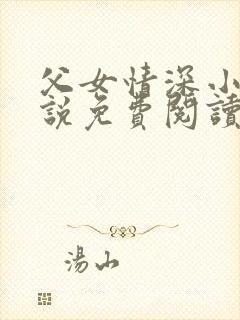 父女情深小
說免費閱讀
湯山